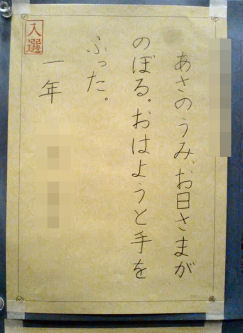 あさのうみ、お日さまが
のぼる。おはようと手を
ふった。
一年
入選